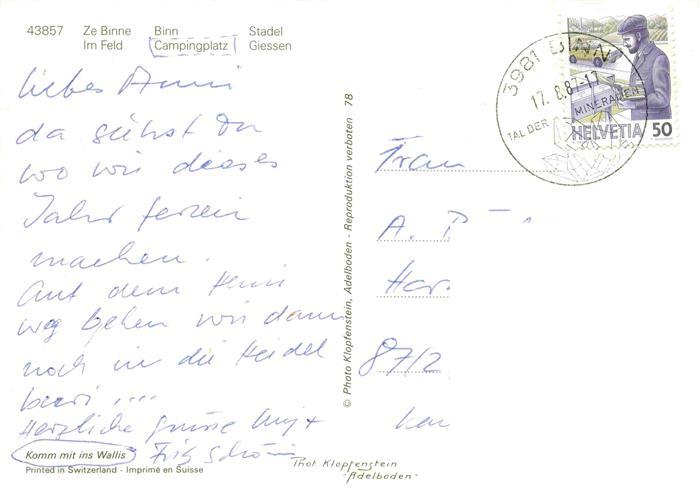 43857 Ze Binne Binn Stadel
Im Feld Campingplatz Giessen
liebes Anni
da siehst Du
wo wir dieses
Jahr ferien
machen.
Auf dem Heim
weg gehen wir dann
noch in die Heidel
beeri ....
Herzliche grüsse
Fritz
Komm mit ins Wallis
Printed in Switzerland - Imprimé en Suisse
© Photo Klopfenstein, Adelboden - Reproduktion verboten 78
Phot. Klopfenstein
-Adelboden-
3981 BINN
17.8.87-17
TAL DER MINERALIEN
HELVETIA 50
Frau
A.
87/2